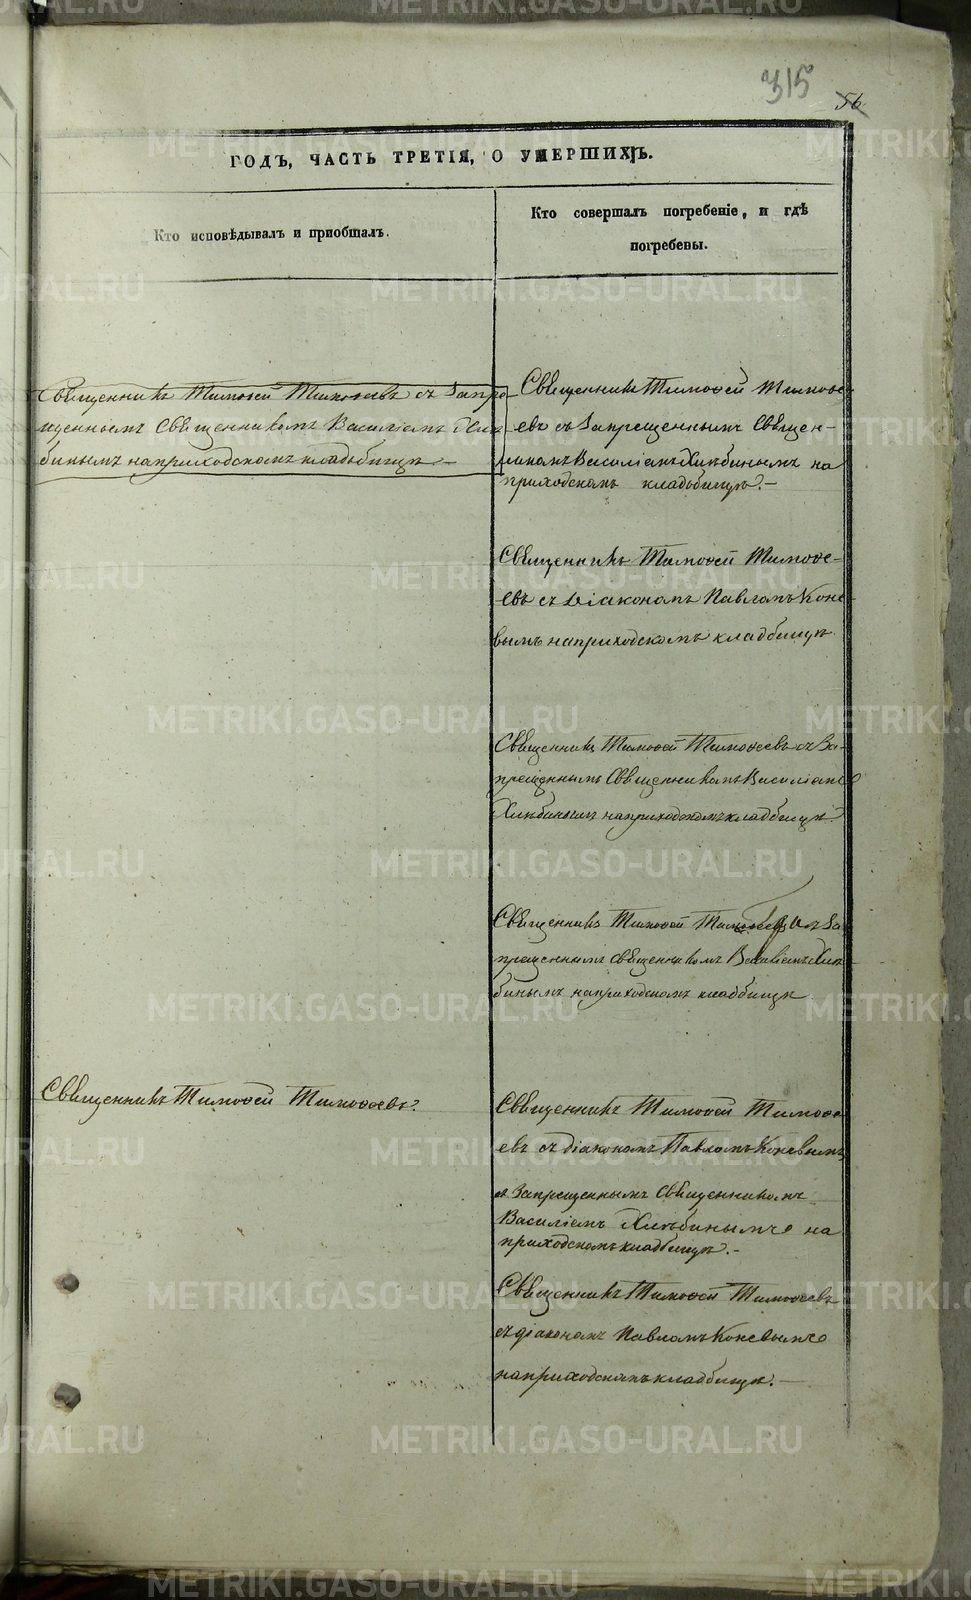 315
56
ГОДЪ, ЧАСТЬ ТРЕТІЯ, О УМЕРШИХЪ.
Кто исповѣдывалъ и пріобщалъ.
Кто совершалъ погребеніе, и гдѣ
погребены.
Священникъ Тимофей Тимофеевъ съ Запре-
щеннымъ Священникомъ Василіемъ Хлѣ-
бинымъ на приходскомъ кладбищѣ
Священникъ Тимофей Тимофе-
евъ съ Запрещеннымъ Священ-
никомъ Василіемъ Хлѣбинымъ на
приходскомъ кладбищѣ.
Священникъ Тимофей Тимофе-
евъ съ Діакономъ Павломъ Коне-
вымъ на приходскомъ кладбищѣ
Священникъ Тимофей Тимофеевъ съ За-
прещеннымъ Священникомъ Василіемъ
Хлѣбинымъ на приходскомъ кладбищѣ.
Священникъ Тимофей Тимофеевъ съ За-
прещеннымъ священникомъ Василіемъ Хлѣ-
бинымъ на приходскомъ кладбищѣ
Священникъ Тимофей Тимофеевъ.
Священникъ Тимофей Тимофе-
евъ съ діакономъ Павломъ Коневымъ
и Запрещеннымъ Священникомъ
Василіемъ Хлѣбинымъ на
приходскомъ кладбищѣ.
Священникъ Тимофей Тимофеевъ
съ діакономъ Павломъ Коневымъ
на приходскомъ кладбищѣ.
METRIKI.GASO-URAL.RU